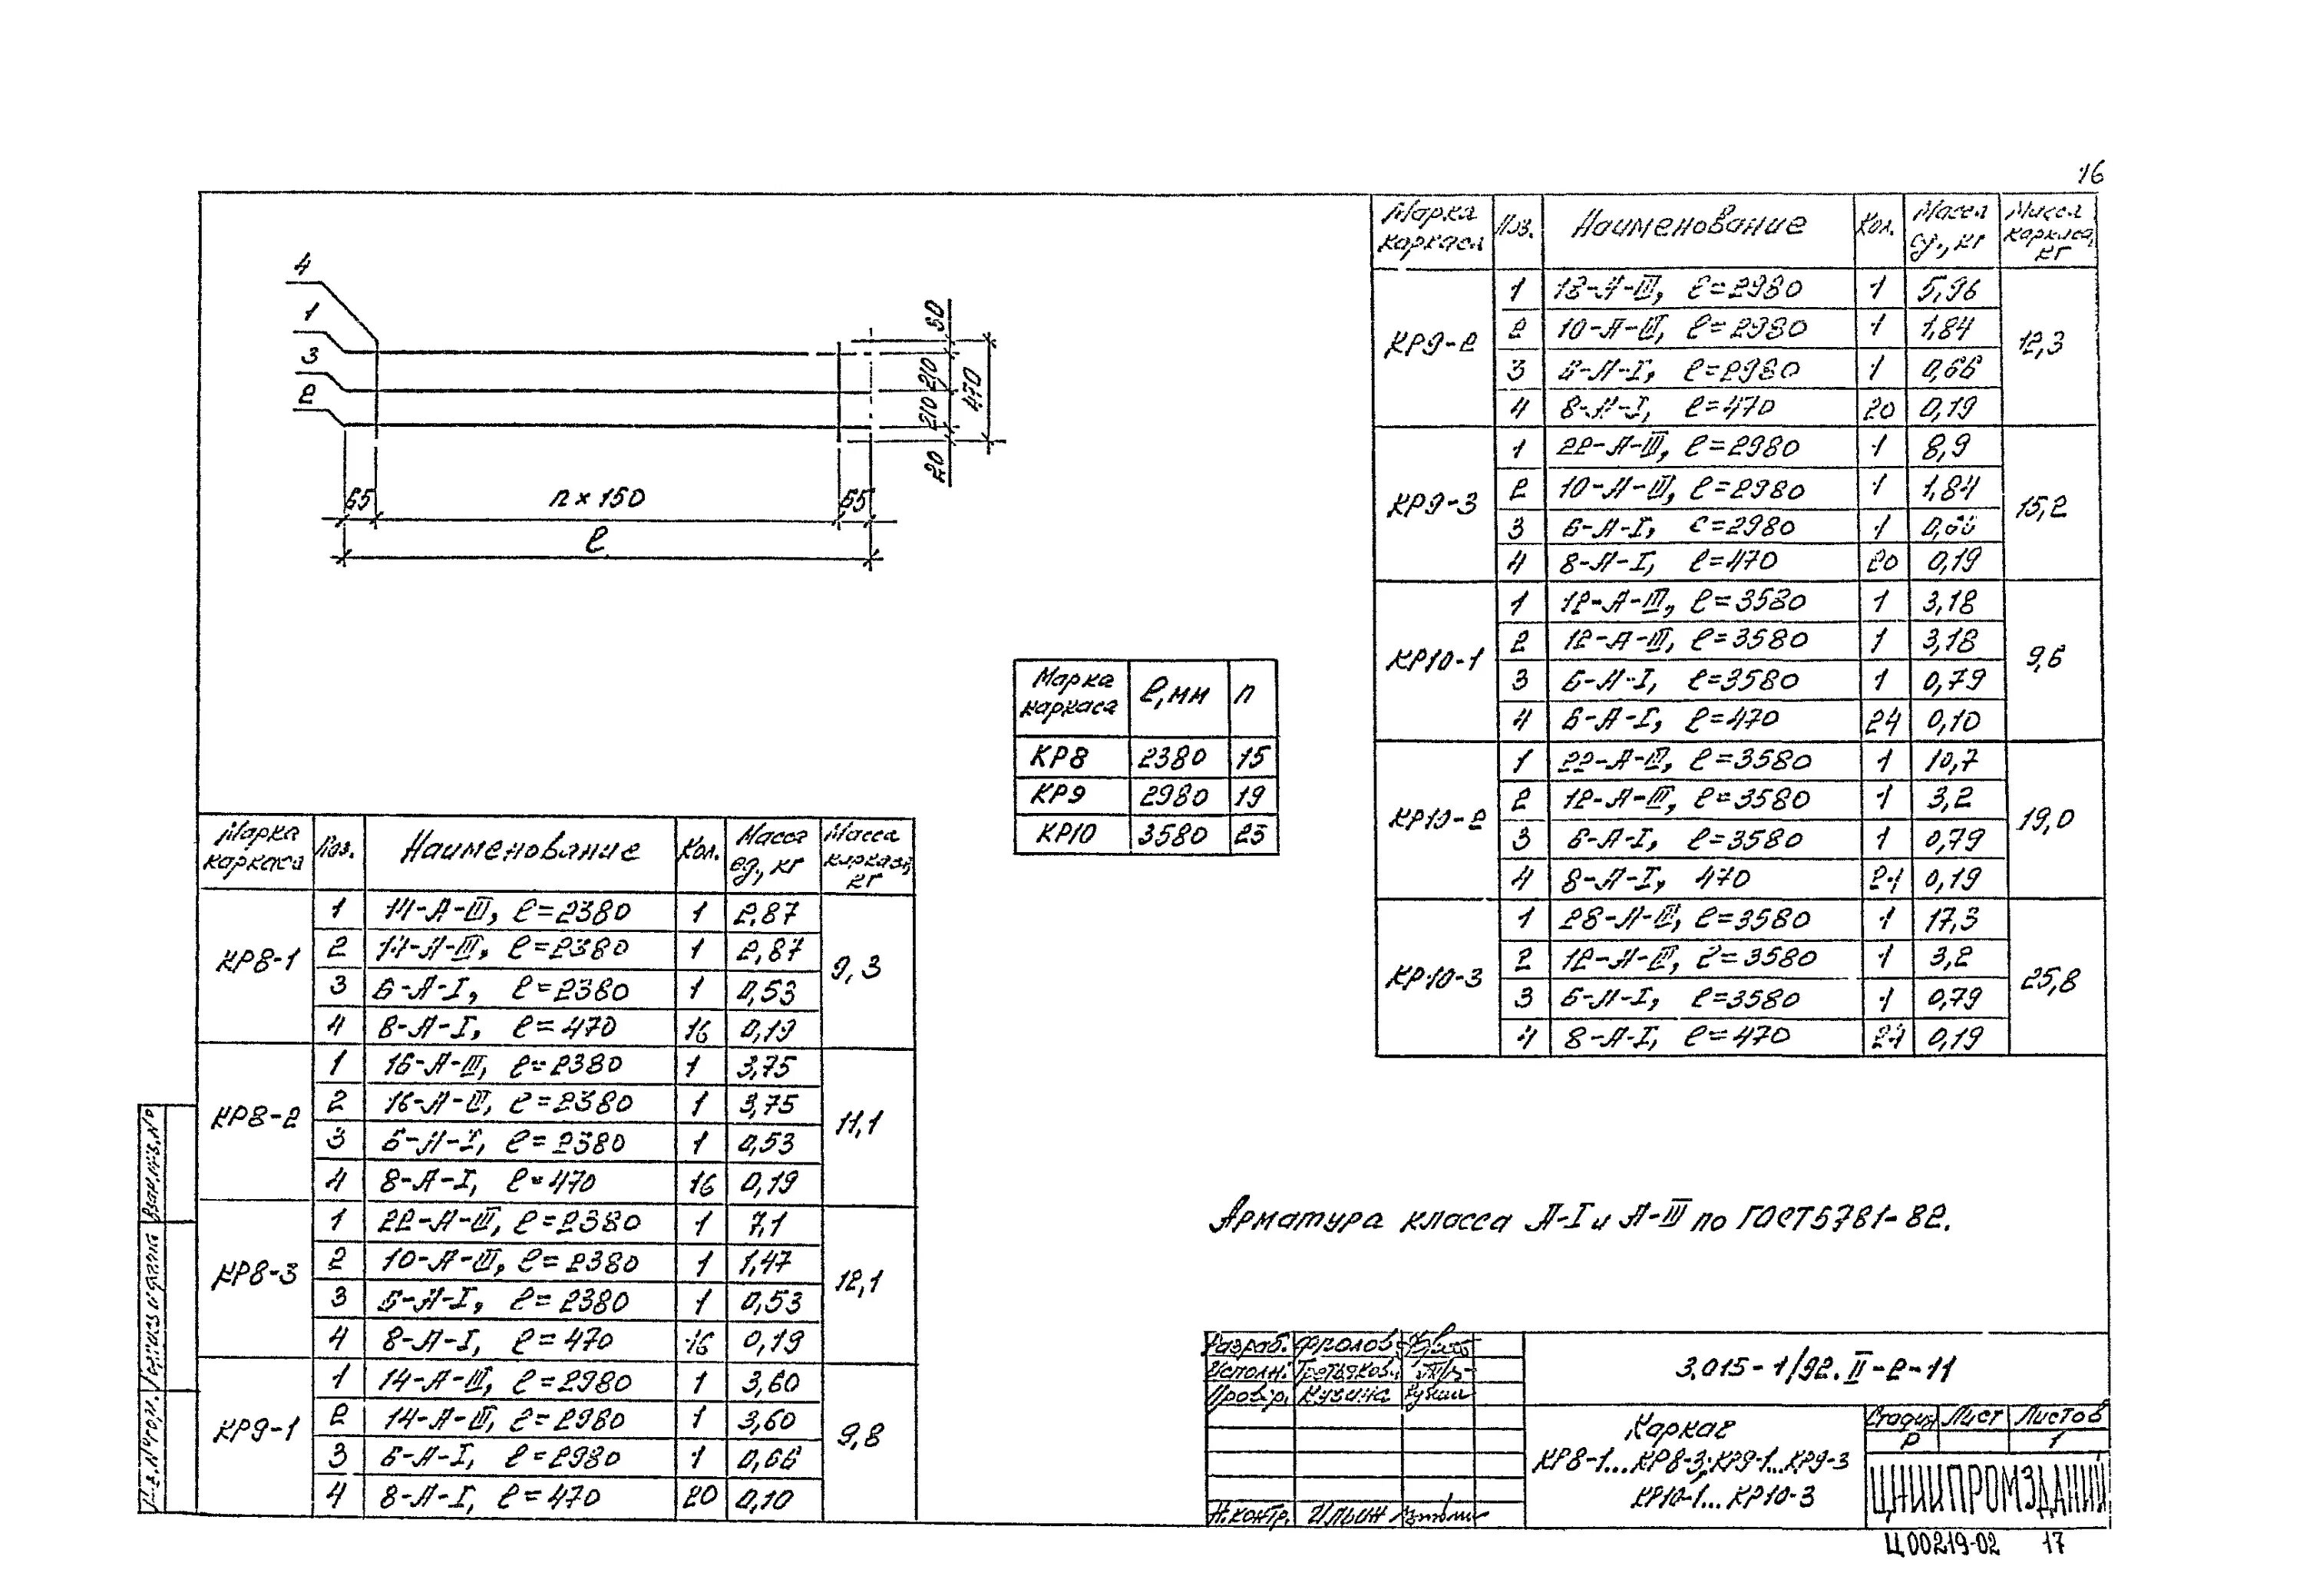 16
4
1
3
2
50
210
210
20
470
65
n × 150
65
ℓ
Марка каркаса | ℓ, мм | n
КР8 | 2380 | 15
КР9 | 2980 | 19
КР10 | 3580 | 23
Марка каркаса | Поз. | Наименование | Кол. | Масса ед., кг | Масса каркаса, кг
КР8-1 | 1 | 14-А-III, ℓ=2380 | 1 | 2,87 | 9,3
2 | 14-А-III, ℓ=2380 | 1 | 2,87
3 | 6-А-I, ℓ=2380 | 1 | 0,53
4 | 8-А-I, ℓ=470 | 16 | 0,19
КР8-2 | 1 | 16-А-III, ℓ=2380 | 1 | 3,75 | 11,1
2 | 16-А-III, ℓ=2380 | 1 | 3,75
3 | 6-А-I, ℓ=2380 | 1 | 0,53
4 | 8-А-I, ℓ=470 | 16 | 0,19
КР8-3 | 1 | 22-А-III, ℓ=2380 | 1 | 7,1 | 12,1
2 | 10-А-III, ℓ=2380 | 1 | 1,47
3 | 6-А-I, ℓ=2380 | 1 | 0,53
4 | 8-А-I, ℓ=470 | 16 | 0,19
КР9-1 | 1 | 14-А-III, ℓ=2980 | 1 | 3,60 | 9,8
2 | 14-А-III, ℓ=2980 | 1 | 3,60
3 | 6-А-I, ℓ=2980 | 1 | 0,66
4 | 8-А-I, ℓ=470 | 20 | 0,10
Марка каркаса | Поз. | Наименование | Кол. | Масса ед., кг | Масса каркаса, кг
КР9-2 | 1 | 18-А-III, ℓ=2980 | 1 | 5,96 | 12,3
2 | 10-А-III, ℓ=2980 | 1 | 1,84
3 | 6-А-I, ℓ=2980 | 1 | 0,66
4 | 8-А-I, ℓ=470 | 20 | 0,19
КР9-3 | 1 | 22-А-III, ℓ=2980 | 1 | 8,9 | 15,2
2 | 10-А-III, ℓ=2980 | 1 | 1,84
3 | 6-А-I, ℓ=2980 | 1 | 0,66
4 | 8-А-I, ℓ=470 | 20 | 0,19
КР10-1 | 1 | 12-А-III, ℓ=3580 | 1 | 3,18 | 9,6
2 | 12-А-III, ℓ=3580 | 1 | 3,18
3 | 6-А-I, ℓ=3580 | 1 | 0,79
4 | 6-А-I, ℓ=470 | 24 | 0,10
КР10-2 | 1 | 22-А-III, ℓ=3580 | 1 | 10,7 | 19,0
2 | 12-А-III, ℓ=3580 | 1 | 3,2
3 | 6-А-I, ℓ=3580 | 1 | 0,79
4 | 8-А-I, 470 | 24 | 0,19
КР10-3 | 1 | 28-А-III, ℓ=3580 | 1 | 17,3 | 25,8
2 | 12-А-III, ℓ=3580 | 1 | 3,2
3 | 6-А-I, ℓ=3580 | 1 | 0,79
4 | 8-А-I, ℓ=470 | 24 | 0,19
Арматура класса А-I и А-III по ГОСТ 5781-82.
Разраб. Фролов
Исполн. Третьяков
Провер. Кузина
Н.контр. Ильин
3.015-1/92.II-2-11
Каркас
КР8-1...КР8-3; КР9-1...КР9-3
КР10-1...КР10-3
Стадия | Лист | Листов
Р | 1
ЦНИИПРОМЗДАНИЙ
Ц00219-02 17
Взам.инв.№
Подпись и дата